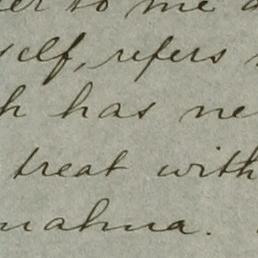 to me
self, refers
h has ne
treat with
nahua.